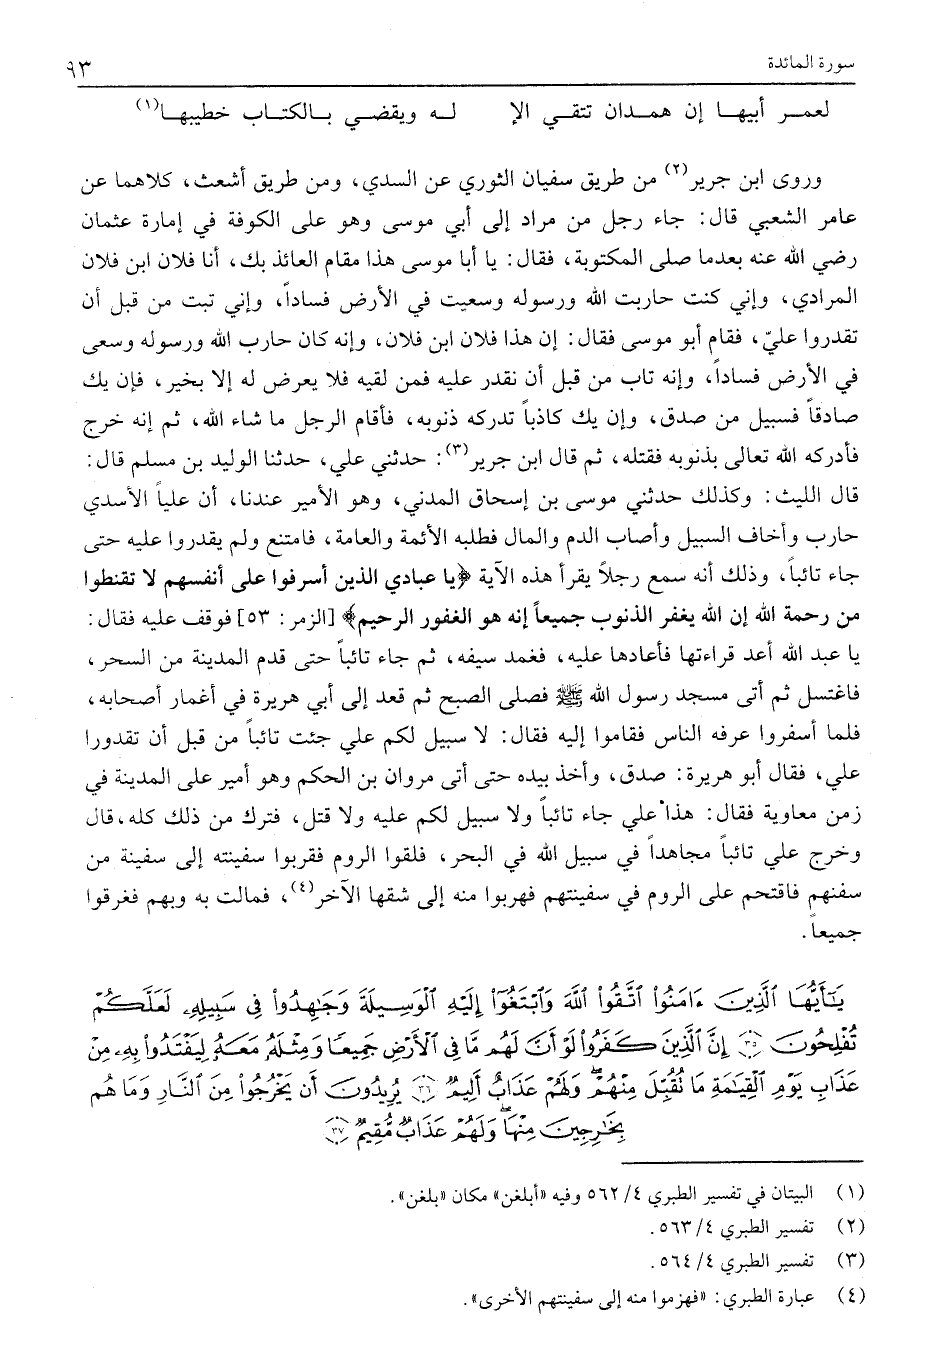 سورة المائدة ٩٣
لعمـر أبيهـا إن همـدان تتقـي الإ لـه ويقضـي بـالكتـاب خطيبهـا(١)
وروى ابن جرير(٢) من طريق سفيان الثوري عن السدي، ومن طريق أشعث، كلاهما عن
عامر الشعبي قال: جاء رجل من مراد إلى أبي موسى وهو على الكوفة في إمارة عثمان
رضي الله عنه بعدما صلى المكتوبة، فقال: يا أبا موسى هذا مقام العائذ بك، أنا فلان ابن فلان
المرادي، وإني كنت حاربت الله ورسوله وسعيت في الأرض فساداً، وإني تبت من قبل أن
تقدروا عليّ، فقام أبو موسى فقال: إن هذا فلان ابن فلان، وإنه كان حارب الله ورسوله وسعى
في الأرض فساداً، وإنه تاب من قبل أن نقدر عليه فمن لقيه فلا يعرض له إلا بخير، فإن يك
صادقاً فسبيل من صدق، وإن يك كاذباً تدركه ذنوبه، فأقام الرجل ما شاء الله، ثم إنه خرج
فأدركه الله تعالى بذنوبه فقتله، ثم قال ابن جرير(٣): حدثني علي، حدثنا الوليد بن مسلم قال:
قال الليث: وكذلك حدثني موسى بن إسحاق المدني، وهو الأمير عندنا، أن علياً الأسدي
حارب وأخاف السبيل وأصاب الدم والمال فطلبه الأئمة والعامة، فامتنع ولم يقدروا عليه حتى
جاء تائباً، وذلك أنه سمع رجلاً يقرأ هذه الآية ﴿يا عبادي الذين أسرفوا على أنفسهم لا تقنطوا
من رحمة الله إن الله يغفر الذنوب جميعاً إنه هو الغفور الرحيم﴾ [الزمر: ٥٣] فوقف عليه فقال:
يا عبد الله أعد قراءتها فأعادها عليه، فغمد سيفه، ثم جاء تائباً حتى قدم المدينة من السحر،
فاغتسل ثم أتى مسجد رسول الله ﷺ فصلى الصبح ثم قعد إلى أبي هريرة في أغمار أصحابه،
فلما أسفروا عرفه الناس فقاموا إليه فقال: لا سبيل لكم علي جئت تائباً من قبل أن تقدورا
علي، فقال أبو هريرة: صدق، وأخذ بيده حتى أتى مروان بن الحكم وهو أمير على المدينة في
زمن معاوية فقال: هذا علي جاء تائباً ولا سبيل لكم عليه ولا قتل، فترك من ذلك كله، قال
وخرج علي تائباً مجاهداً في سبيل الله في البحر، فلقوا الروم فقربوا سفينته إلى سفينة من
سفنهم فاقتحم على الروم في سفينتهم فهربوا منه إلى شقها الآخر(٤)، فمالت به وبهم فغرقوا
جميعاً.
يَٰٓأَيُّهَا ٱلَّذِينَ ءَامَنُوا۟ ٱتَّقُوا۟ ٱللَّهَ وَٱبْتَغُوٓا۟ إِلَيْهِ ٱلْوَسِيلَةَ وَجَٰهِدُوا۟ فِى سَبِيلِهِۦ لَعَلَّكُمْ
تُفْلِحُونَ ٣٥ إِنَّ ٱلَّذِينَ كَفَرُوا۟ لَوْ أَنَّ لَهُم مَّا فِى ٱلْأَرْضِ جَمِيعًا وَمِثْلَهُۥ مَعَهُۥ لِيَفْتَدُوا۟ بِهِۦ مِنْ
عَذَابِ يَوْمِ ٱلْقِيَٰمَةِ مَا تُقُبِّلَ مِنْهُمْ ۖ وَلَهُمْ عَذَابٌ أَلِيمٌ ٣٦ يُرِيدُونَ أَن يَخْرُجُوا۟ مِنَ ٱلنَّارِ وَمَا هُم
بِخَٰرِجِينَ مِنْهَا ۖ وَلَهُمْ عَذَابٌ مُّقِيمٌ ٣٧
(١) البيتان في تفسير الطبري ٤/ ٥٦٢ وفيه «أبلغن» مكان «بلغن».
(٢) تفسير الطبري ٤/ ٥٦٣.
(٣) تفسير الطبري ٤/ ٥٦٤.
(٤) عبارة الطبري: «فهزموا منه إلى سفينتهم الأخرى».